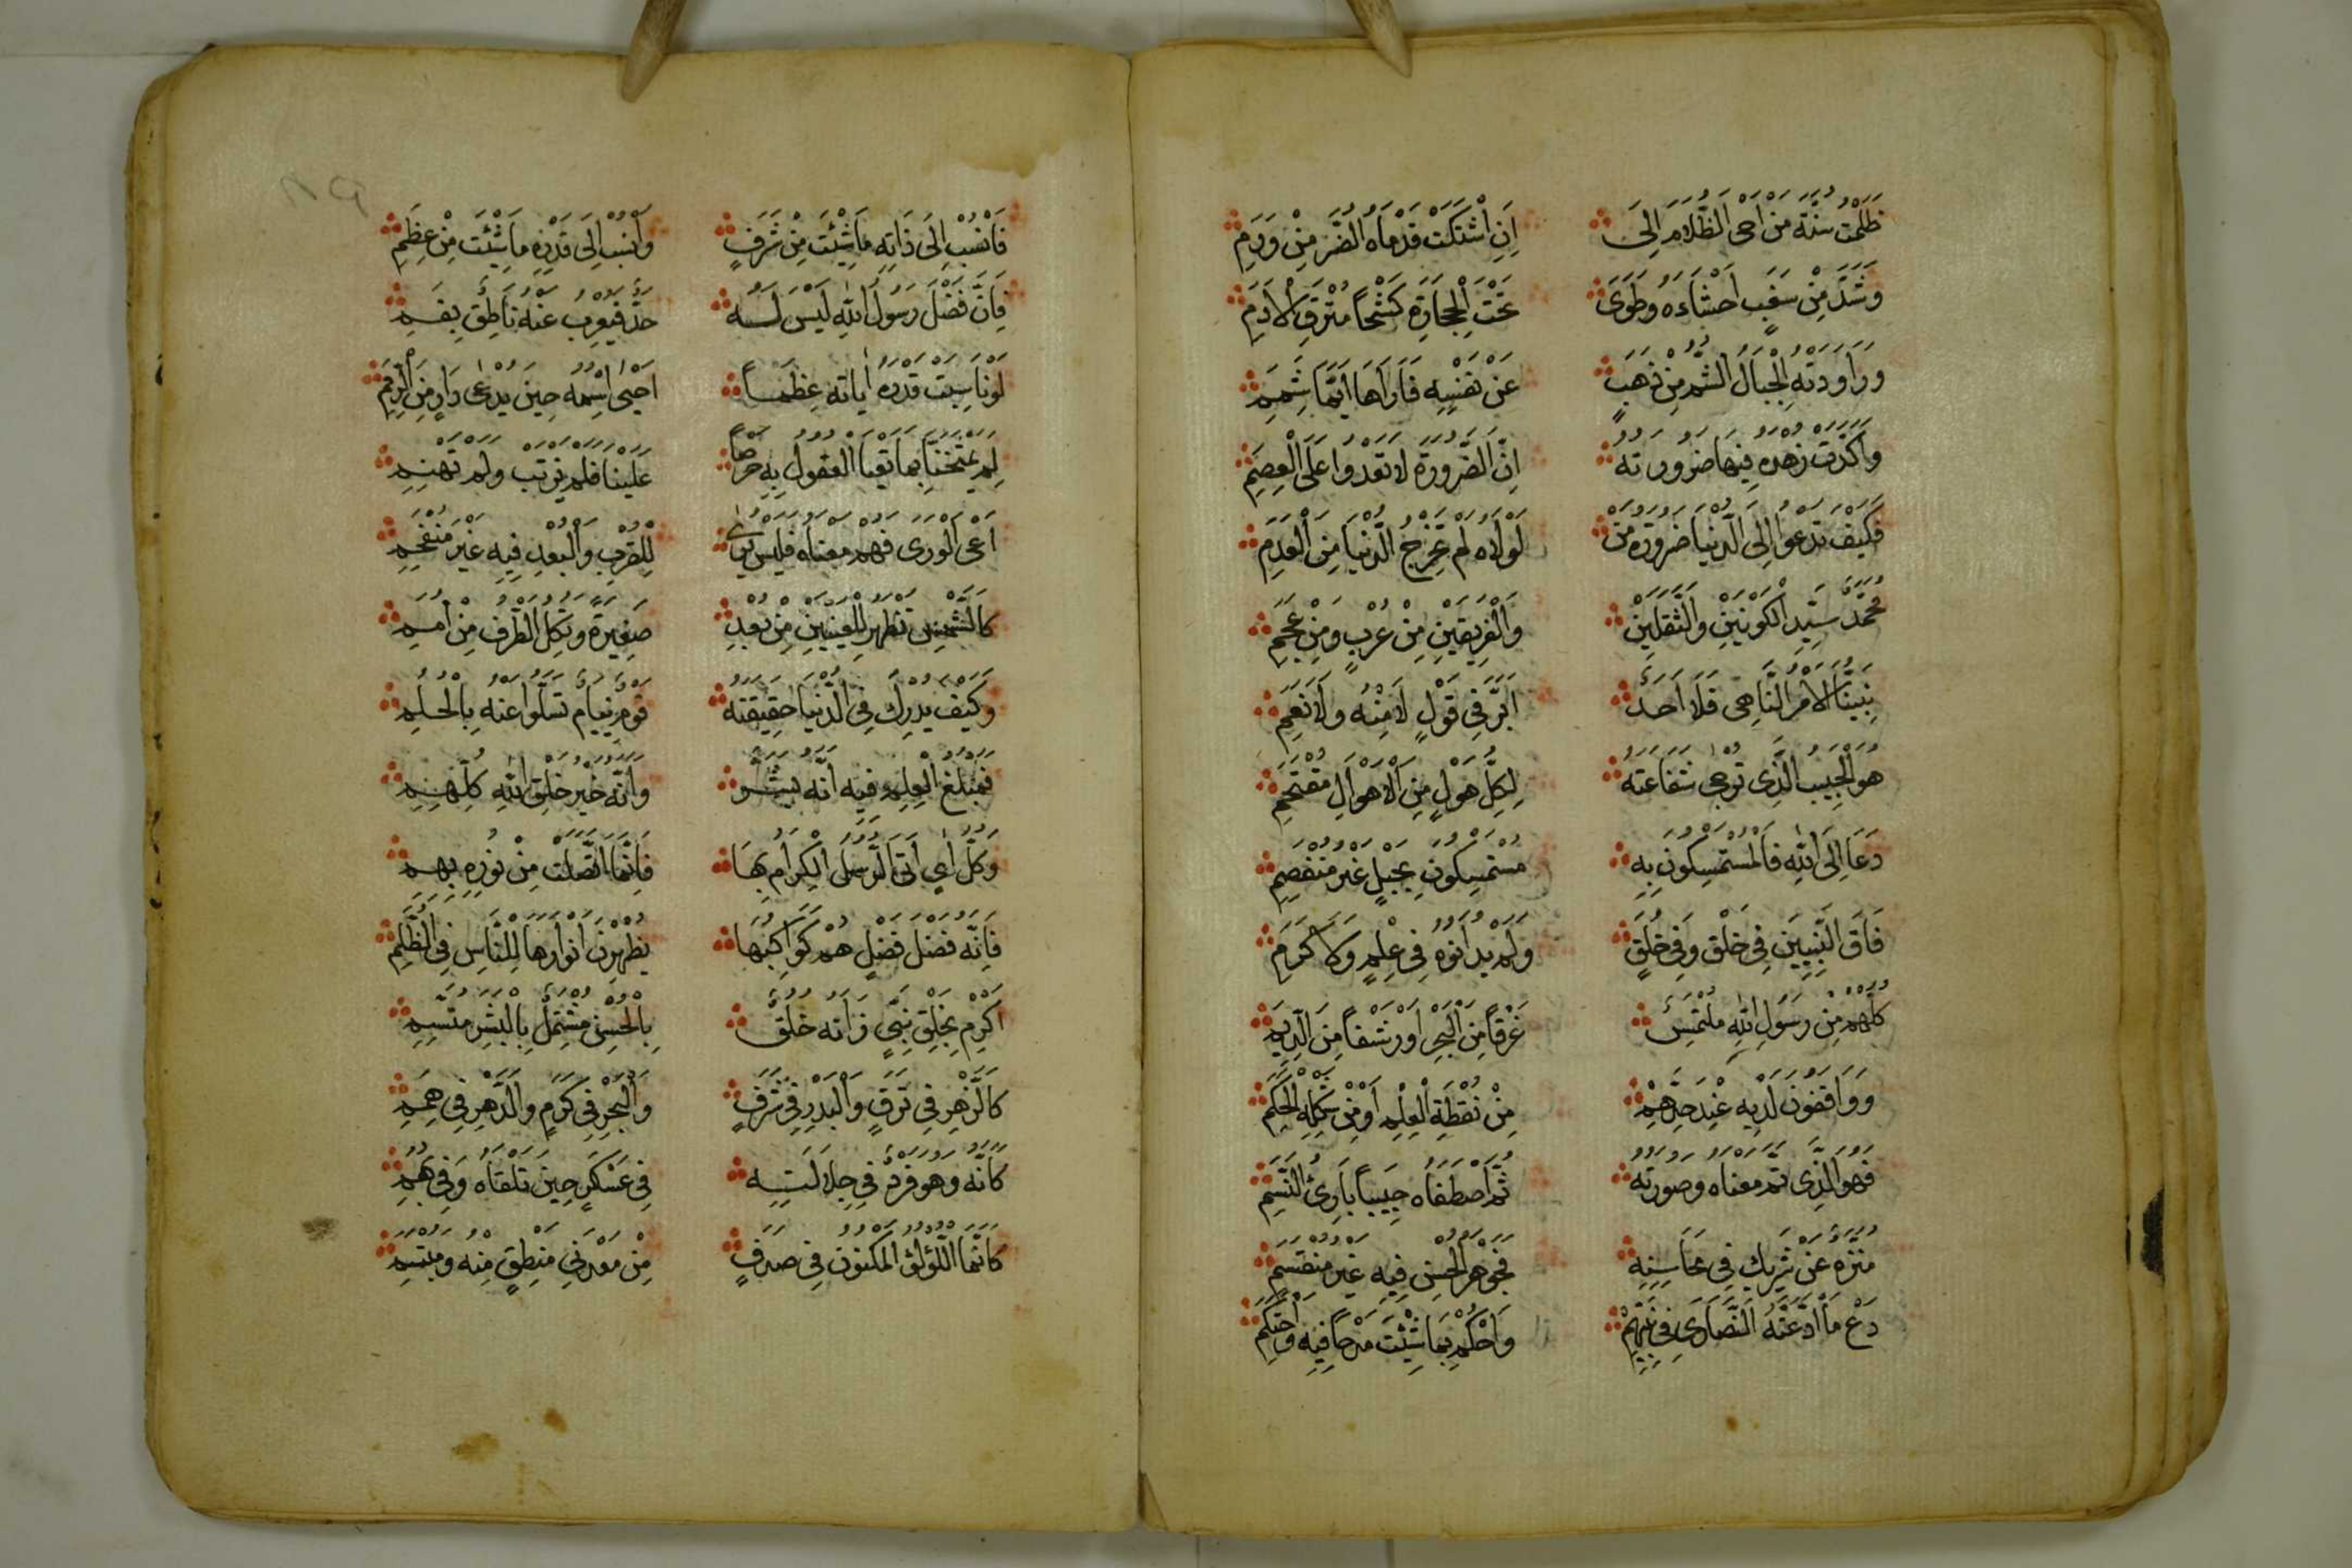 ظَلَمْتُ سُنَّةَ مَنْ اَحْىَ الظَّلَامَ اِلَى اِنِ اشْتَكَتْ قَدَمَاهُ الضُّرَّ مِنْ وَرَمِ
وَشَدَّ مِنْ سَغَبٍ اَحْشَاءَهُ وَطَوَى تَحْتَ الْحِجَارَةِ كَشْحًا مُتْرَفَ الْاَدَمِ
وَرَاوَدَتْهُ الْجِبَالُ الشُّمُّ مِنْ ذَهَبٍ عَنْ نَفْسِهِ فَاَرَاهَا اَيَّمَا شَمَمِ
وَاَكَّدَتْ زُهْدَهُ فِيهَا ضَرُورَتُهُ اِنَّ الضَّرُورَةَ لَا تَعْدُوا عَلَى الْعِصَمِ
فَكَيْفَ تَدْعُوا اِلَى الدُّنْيَا ضَرُورَةُ مَنْ لَوْلَاهُ لَمْ تَخْرُجِ الدُّنْيَا مِنَ الْعَدَمِ
مُحَمَّدٌ سَيِّدُ الْكَوْنَيْنِ وَالثَّقَلَيْنِ وَالْفَرِيقَيْنِ مِنْ عُرْبٍ وَمِنْ عَجَمِ
نَبِيُّنَا الْاٰمِرُ النَّاهِى فَلَا اَحَدٌ اَبَرَّ فِى قَوْلِ لَا مِنْهُ وَلَا نَعَمِ
هُوَ الْحَبِيبُ الَّذِى تُرْجٰى شَفَاعَتُهُ لِكُلِّ هَوْلٍ مِنَ الْاَهْوَالِ مُقْتَحَمِ
دَعَا اِلَى اللّٰهِ فَالْمُسْتَمْسِكُونَ بِهِ مُسْتَمْسِكُونَ بِحَبْلٍ غَيْرِ مُنْفَصِمِ
فَاقَ النَّبِيِّينَ فِى خَلْقٍ وَفِى خُلُقٍ وَلَمْ يُدَانُوهُ فِى عِلْمٍ وَلَا كَرَمِ
كُلُّهُمْ مِنْ رَسُولِ اللّٰهِ مُلْتَمِسٌ غَرْفًا مِنَ الْبَحْرِ اَوْ رَشْفًا مِنَ الدِّيَمِ
وَوَاقِفُونَ لَدَيْهِ عِنْدَ حَدِّهِمْ مِنْ نُقْطَةِ الْعِلْمِ اَوْ مِنْ شَكْلَةِ الْحِكَمِ
فَهُوَ الَّذِى تَمَّ مَعْنَاهُ وَصُورَتُهُ ثُمَّ اصْطَفَاهُ حَبِيبًا بَارِئُ النَّسَمِ
مُنَزَّهٌ عَنْ شَرِيكٍ فِى مَحَاسِنِهِ فَجَوْهَرُ الْحُسْنِ فِيهِ غَيْرُ مُنْقَسِمِ
دَعْ مَا ادَّعَتْهُ النَّصَارَى فِى نَبِيِّهِمْ وَاحْكُمْ بِمَا شِئْتَ مَدْحًا فِيهِ وَاحْتَكِمِ
فَانْسُبْ اِلَى ذَاتِهِ مَا شِئْتَ مِنْ شَرَفٍ وَانْسُبْ اِلَى قَدْرِهِ مَا شِئْتَ مِنْ عِظَمِ
فَاِنَّ فَضْلَ رَسُولِ اللّٰهِ لَيْسَ لَهُ حَدٌّ فَيُعْرِبَ عَنْهُ نَاطِقٌ بِفَمِ
لَوْ نَاسَبَتْ قَدْرَهُ اٰيَاتُهُ عِظَمًا اَحْيٰى اسْمُهُ حِينَ يُدْعٰى دَارِسَ الرِّمَمِ
لَمْ يَمْتَحِنَّا بِمَا تَعْيَا الْعُقُولُ بِهِ حِرْصًا عَلَيْنَا فَلَمْ نَرْتَبْ وَلَمْ نَهِمِ
اَعْىَ الْوَرَى فَهْمُ مَعْنَاهُ فَلَيْسَ يُرٰى لِلْقُرْبِ وَالْبُعْدِ فِيهِ غَيْرُ مُنْفَحِمِ
كَالشَّمْسِ تَظْهَرُ لِلْعَيْنَيْنِ مِنْ بُعُدٍ صَغِيرَةً وَتُكِلُّ الطَّرْفَ مِنْ اَمَمِ
وَكَيْفَ يُدْرِكُ فِى الدُّنْيَا حَقِيقَتَهُ قَوْمٌ نِيَامٌ تَسَلَّوْا عَنْهُ بِالْحُلُمِ
فَمَبْلَغُ الْعِلْمِ فِيهِ اَنَّهُ بَشَرٌ وَاَنَّهُ خَيْرُ خَلْقِ اللّٰهِ كُلِّهِمِ
وَكُلُّ اٰىٍ اَتَى الرُّسُلُ الْكِرَامُ بِهَا فَاِنَّمَا اتَّصَلَتْ مِنْ نُورِهِ بِهِمِ
فَاِنَّهُ فَضْلُ فَضْلٍ هُمْ كَوَاكِبُهَا يُظْهِرْنَ اَنْوَارَهَا لِلنَّاسِ فِى الظُّلَمِ
اَكْرِمْ بِخَلْقِ نَبِىٍّ زَانَهُ خُلُقٌ بِالْحُسْنِ مُشْتَمِلٍ بِالْبِشْرِ مُتَّسِمِ
كَالزَّهْرِ فِى تَرَفٍ وَالْبَدْرِ فِى شَرَفٍ وَالْبَحْرِ فِى كَرَمٍ وَالدَّهْرِ فِى هِمَمِ
كَاَنَّهُ وَهُوَ فَرْدٌ فِى جَلَالَتِهِ فِى عَسْكَرٍ حِينَ تَلْقَاهُ وَفِى هَمِ
كَاَنَّمَا اللُّؤْلُؤُ الْمَكْنُونُ فِى صَدَفٍ مِنْ مَعْدِنَىْ مَنْطِقٍ مِنْهُ وَمُبْتَسَمِ